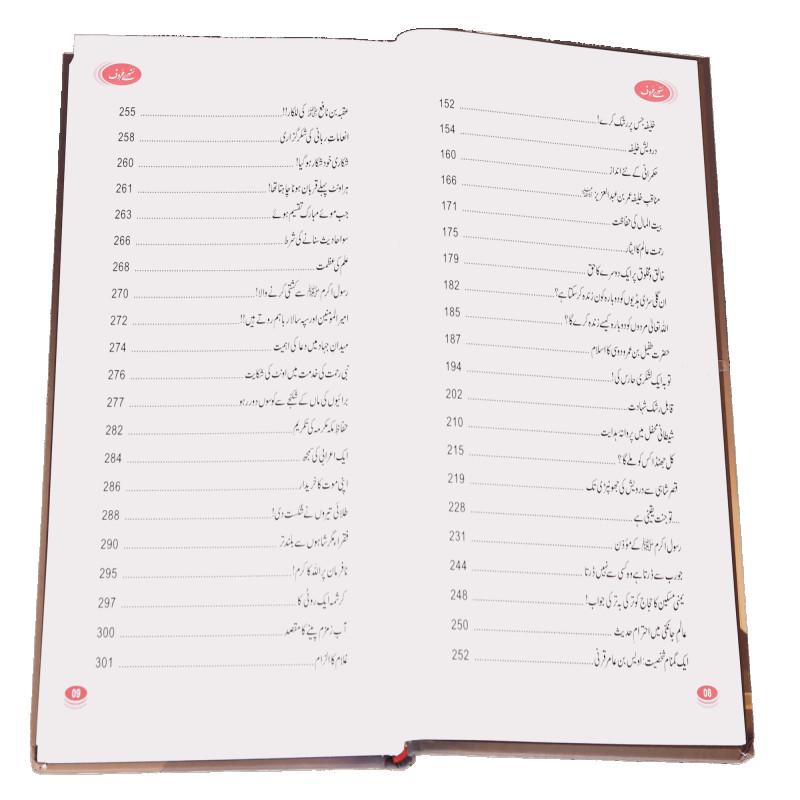 سنہرے حروف
خلیفہ جس پر رشک کرے! 152
درویش خلیفہ 154
حکمرانی کے نئے انداز 160
مناقب خلیفہ عمر بن عبدالعزیز رحمہ اللہ 166
بیت المال کی حفاظت 171
رحمت عالم کا ایثار 175
خالق و مخلوق پر ایک دوسرے کا حق 179
ان گلی سڑی ہڈیوں کو دوبارہ کون زندہ کر سکتا ہے؟ 182
اللہ تعالیٰ مردوں کو دوبارہ کیسے زندہ کرے گا؟ 185
حضرت طفیل بن عمرو دوسی کا اسلام 187
توبہ ایک لشکری حارس کی! 194
قابل رشک شہادت 202
شیطانی محفل میں پروانۂ ہدایت 210
کل جھنڈا کس کو ملے گا؟ 215
قصر شاہی سے درویش کی جھونپڑی تک 219
....تو جنت یقینی ہے 228
رسول اکرم ﷺ کے مؤذن 231
جو رب سے ڈرتا ہے وہ کسی سے نہیں ڈرتا 244
یمنی مسکین کا حجاج کو ترکی بہ ترکی جواب! 248
عالم جانکنی میں احترام حدیث 250
ایک گمنام شخصیت: اویس بن عامر قرنی 252
08
سنہرے حروف
عقبہ بن نافع کی للکار!! 255
انعامات ربانی کی شکر گزاری 258
شکاری خود شکار ہو گیا! 260
ہر اونٹ پہلے قربان ہونا چاہتا تھا! 261
جب موئے مبارک تقسیم ہوئے 263
سو احادیث سنانے کی شرط 266
علم کی عظمت 268
رسول اکرم ﷺ سے کشتی کرنے والا! 270
امیر المومنین اور سپہ سالار باہم روتے ہیں!! 272
میدان جہاد میں دعا کی اہمیت 274
نبی رحمت کی خدمت میں اونٹ کی شکایت 276
برائیوں کی ماں کے شکنجے سے کوسوں دور رہو 277
حفاظ مکہ مکرمہ کی تکریم 282
ایک اعرابی کی سمجھ 284
اپنی موت کا خریدار 286
طلائی تیروں نے شکست دی! 288
فقرا، مگر شاہوں سے بلند تر 290
نافرمان پر اللہ کا کرم! 295
کرشمہ ایک روٹی کا 297
آب زمزم پینے کا مقصد 300
غلام کا الزام 301
09